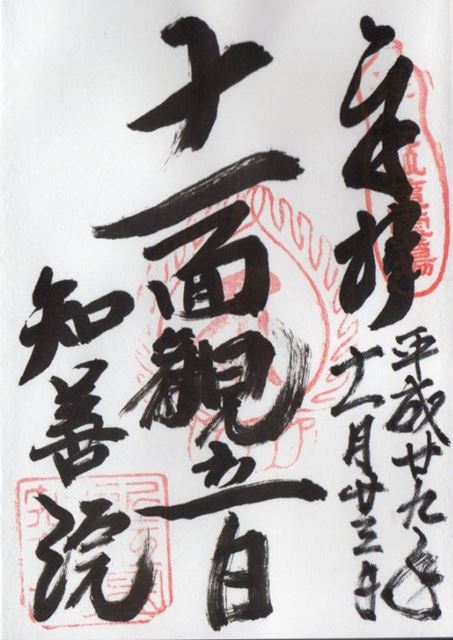 奉拝
平成廿九年
十一月廿三日
十一面観音
知善院